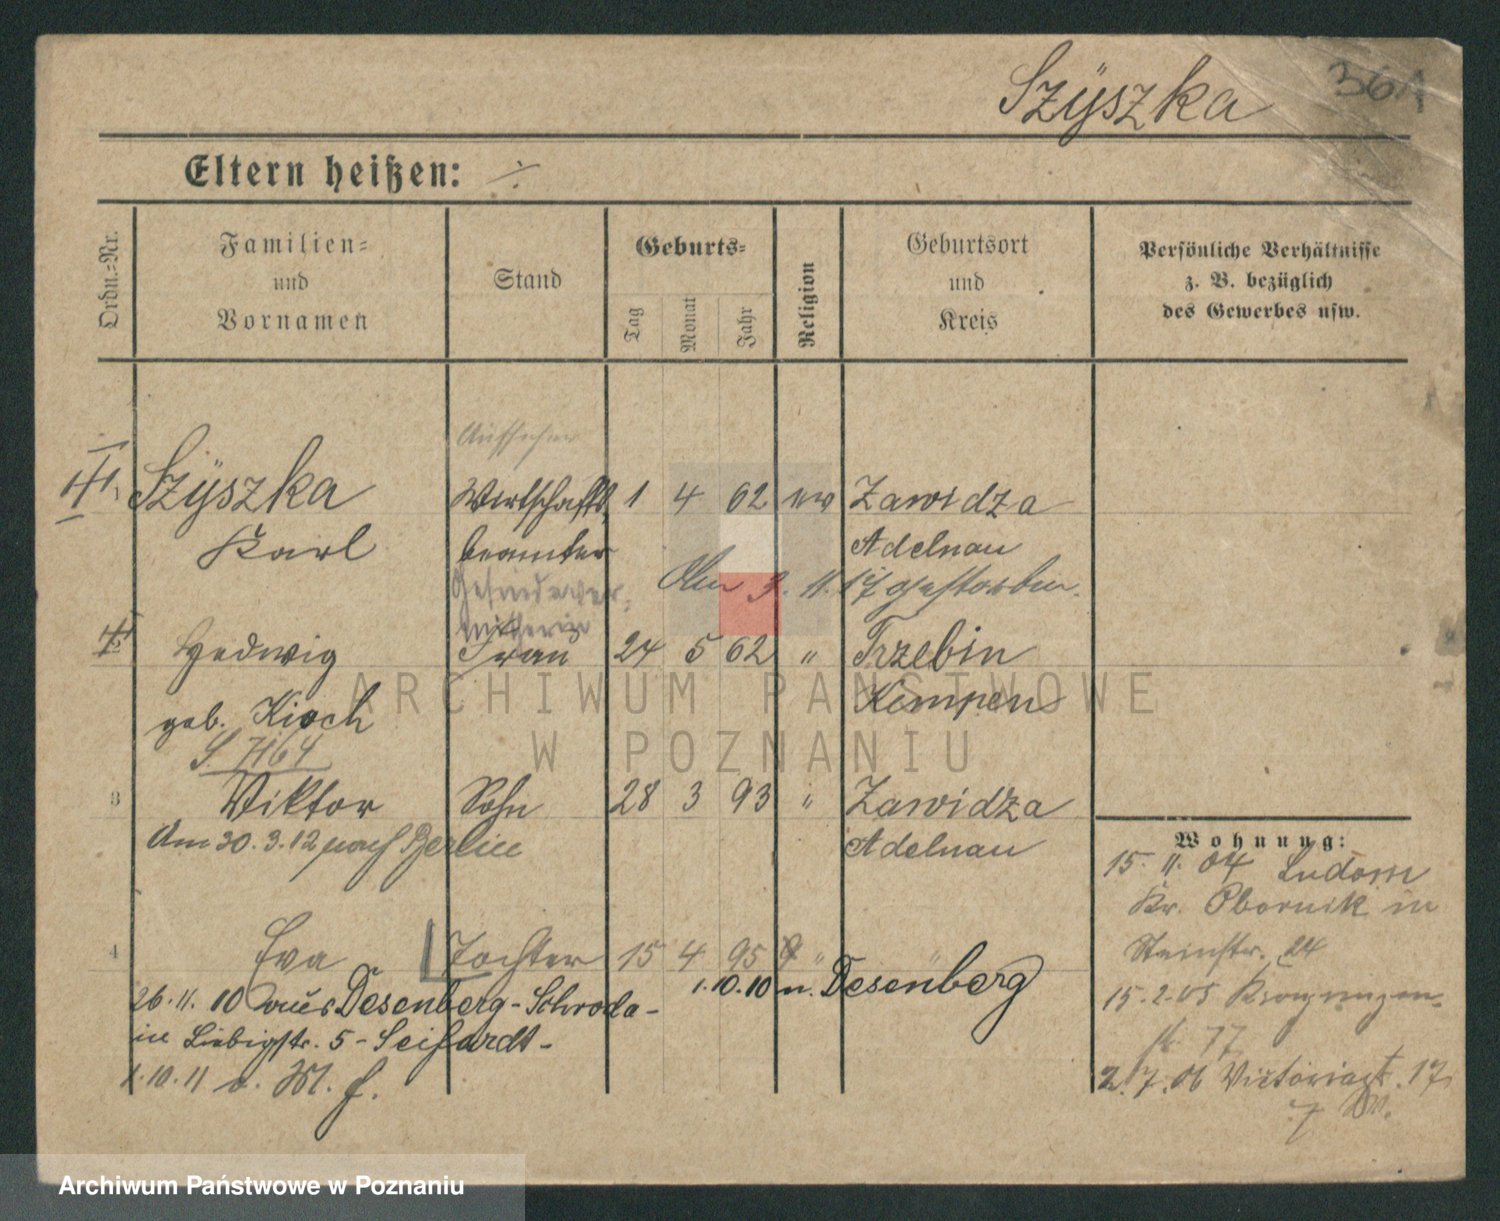 361
Szÿszka
Eltern heißen: ÷
Ordn.-Nr.
Familien-
und
Vornamen
Stand
Geburts-
Tag
Monat
Jahr
Religion
Geburtsort
und
Kreis
Persönliche Verhältnisse
z. B. bezüglich
des Gewerbes usw.
Aufseher
Szÿszka Wirtschafts 1 4 62 Zawidza
Karl beamter Adelnau
Am 3. 11. 17 gestorben.
Gesindever-
mitherin
Hedwig Frau 24 5 62 " Trzebin
geb. Kempen
S. 7164
3 Viktor Sohn 28 3 93 " Zawidza
Am 30. 3. 12 nach Berlin Adelnau
Wohnung:
15. 11. 04 Ludom
Kr. Obornik in
Steinstr. 24
4 Eva Tochter 15 4 95 "
1.10.10 n. Desenberg
26. 11. 10 aus Desenberg - Schroda -
in Liebigstr. 5 - Seifardt -
15. 2. 05 Kronprinzen-
77
1.10.11 v. M. f.
2. 7. 06 Victoriast. 17
ARCHIWUM PAŃSTWOWE
W POZNANIU
Archiwum Państwowe w Poznaniu